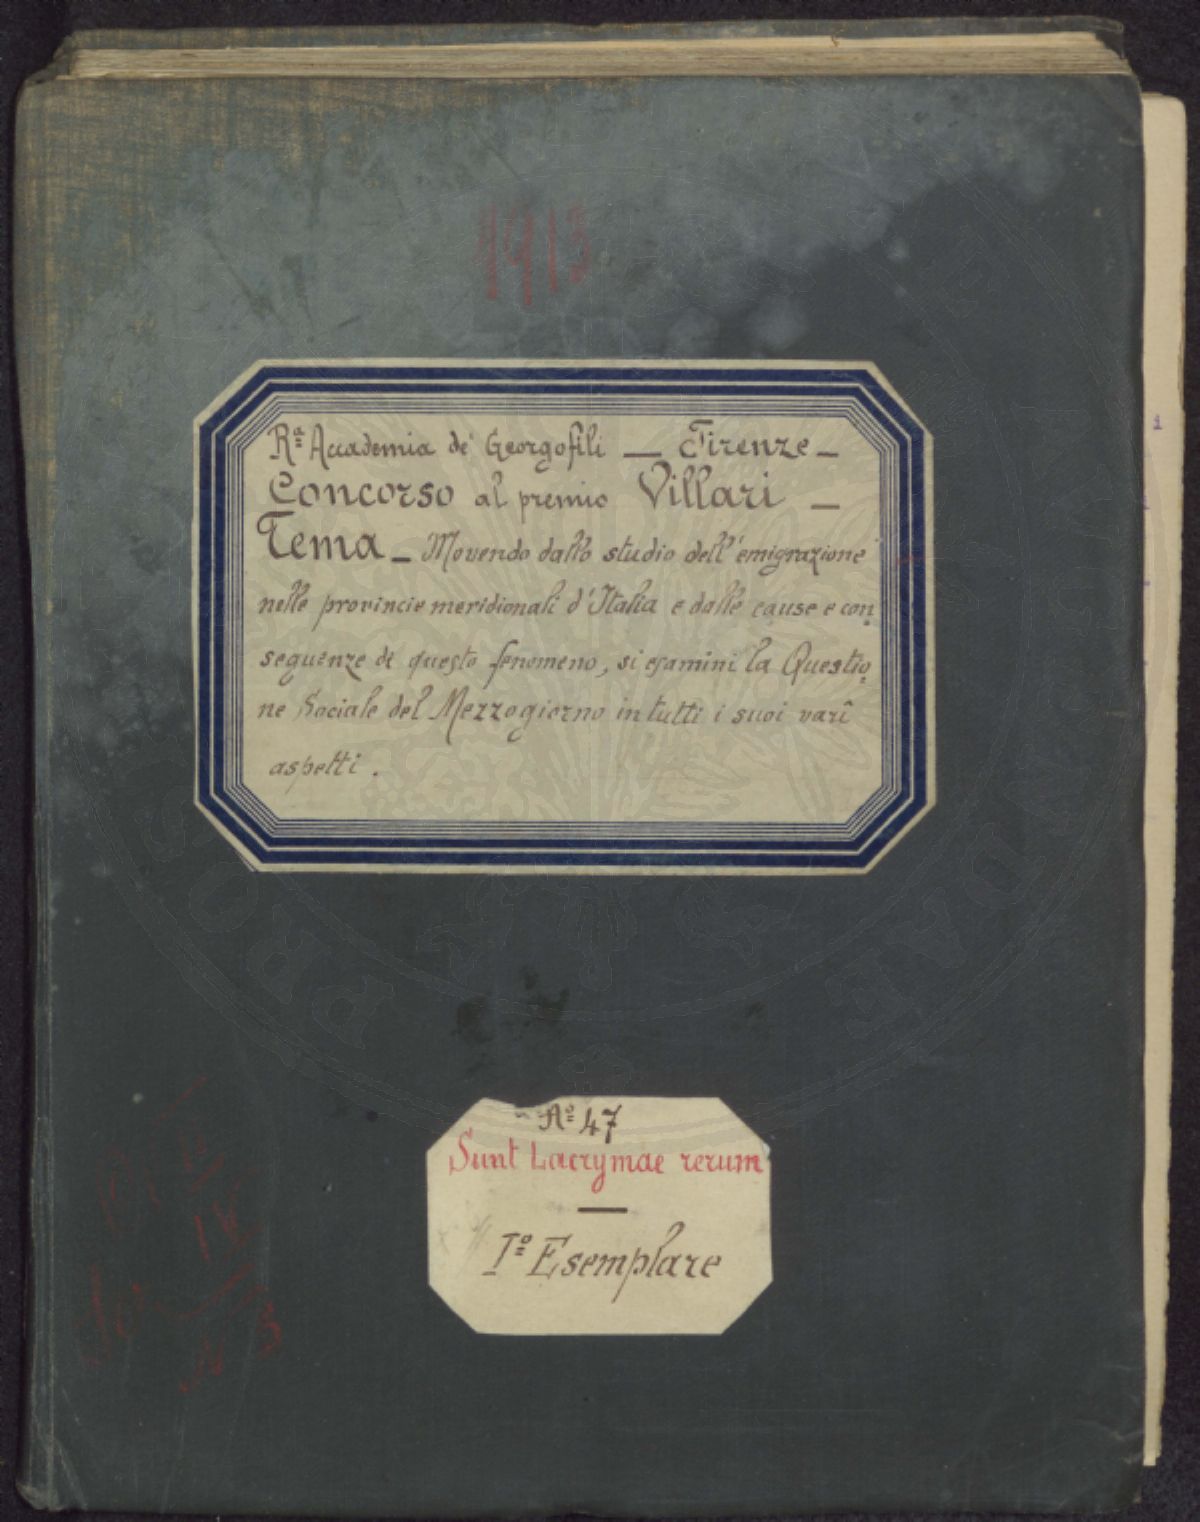 1913
Rª Accademia de' Georgofili — Firenze —
Concorso al premio Villari —
Tema — Movendo dallo studio dell'emigrazione
nelle provincie meridionali d'Italia e dalle cause e con
seguenze di questo fenomeno, si esamini la Questio
ne Sociale del Mezzogiorno in tutti i suoi varî
aspetti.
Nº 47
Sunt Lacrymae rerum
—
Iº Esemplare